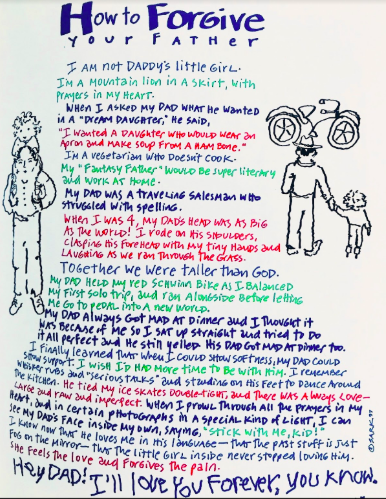 How to Forgive
Your Father
I am not DADDY's little Girl.
I'm a mountain lion in a skirt, with
prayers in my heart.
When I asked my DAD what He wanted
in a "Dream Daughter," He said,
"I wanted a Daughter who would wear an
Apron and make soup from a Ham Bone."
I'm a vegetarian who doesn't cook.
My "Fantasy Father" would be super literary
and work at home.
My DAD was a traveling salesman who
struggled with spelling.
When I was 4, my DAD's head was as big
as the world! I rode on His shoulders,
clasping His forehead with my tiny hands and
laughing as we ran through the grass.
Together we were taller than God.
My DAD Held my red Schwinn Bike as I Balanced
my first solo trip, and ran alongside Before letting
me Go to pedal into a new world.
My DAD Always Got mad at Dinner and I thought it
was Because of me so I sat up straight and tried to Do
it all perfect and He still yelled. His DAD Got mad at Dinner too.
I finally learned that when I could show softness, my DAD could
show support. I wish I'D had more time to Be with Him. I remember
whisker rubs and "serious talks" and standing on His Feet to Dance Around
the Kitchen. He tied my ice skates Double-tight, and there was Always love—
large and raw and imperfect. When I prowl through all the prayers in my
Heart, and in certain photographs in a special kind of light, I can
see my DAD's Face inside my own, saying, "Stick with me, kid!"
I know now that He loves me in His language—that the past stuff is just
Fog on the mirror—that the little Girl inside never stopped loving Him.
She Feels the love and Forgives the pain.
Hey DAD! I'll love you Forever, you know.
© SARK